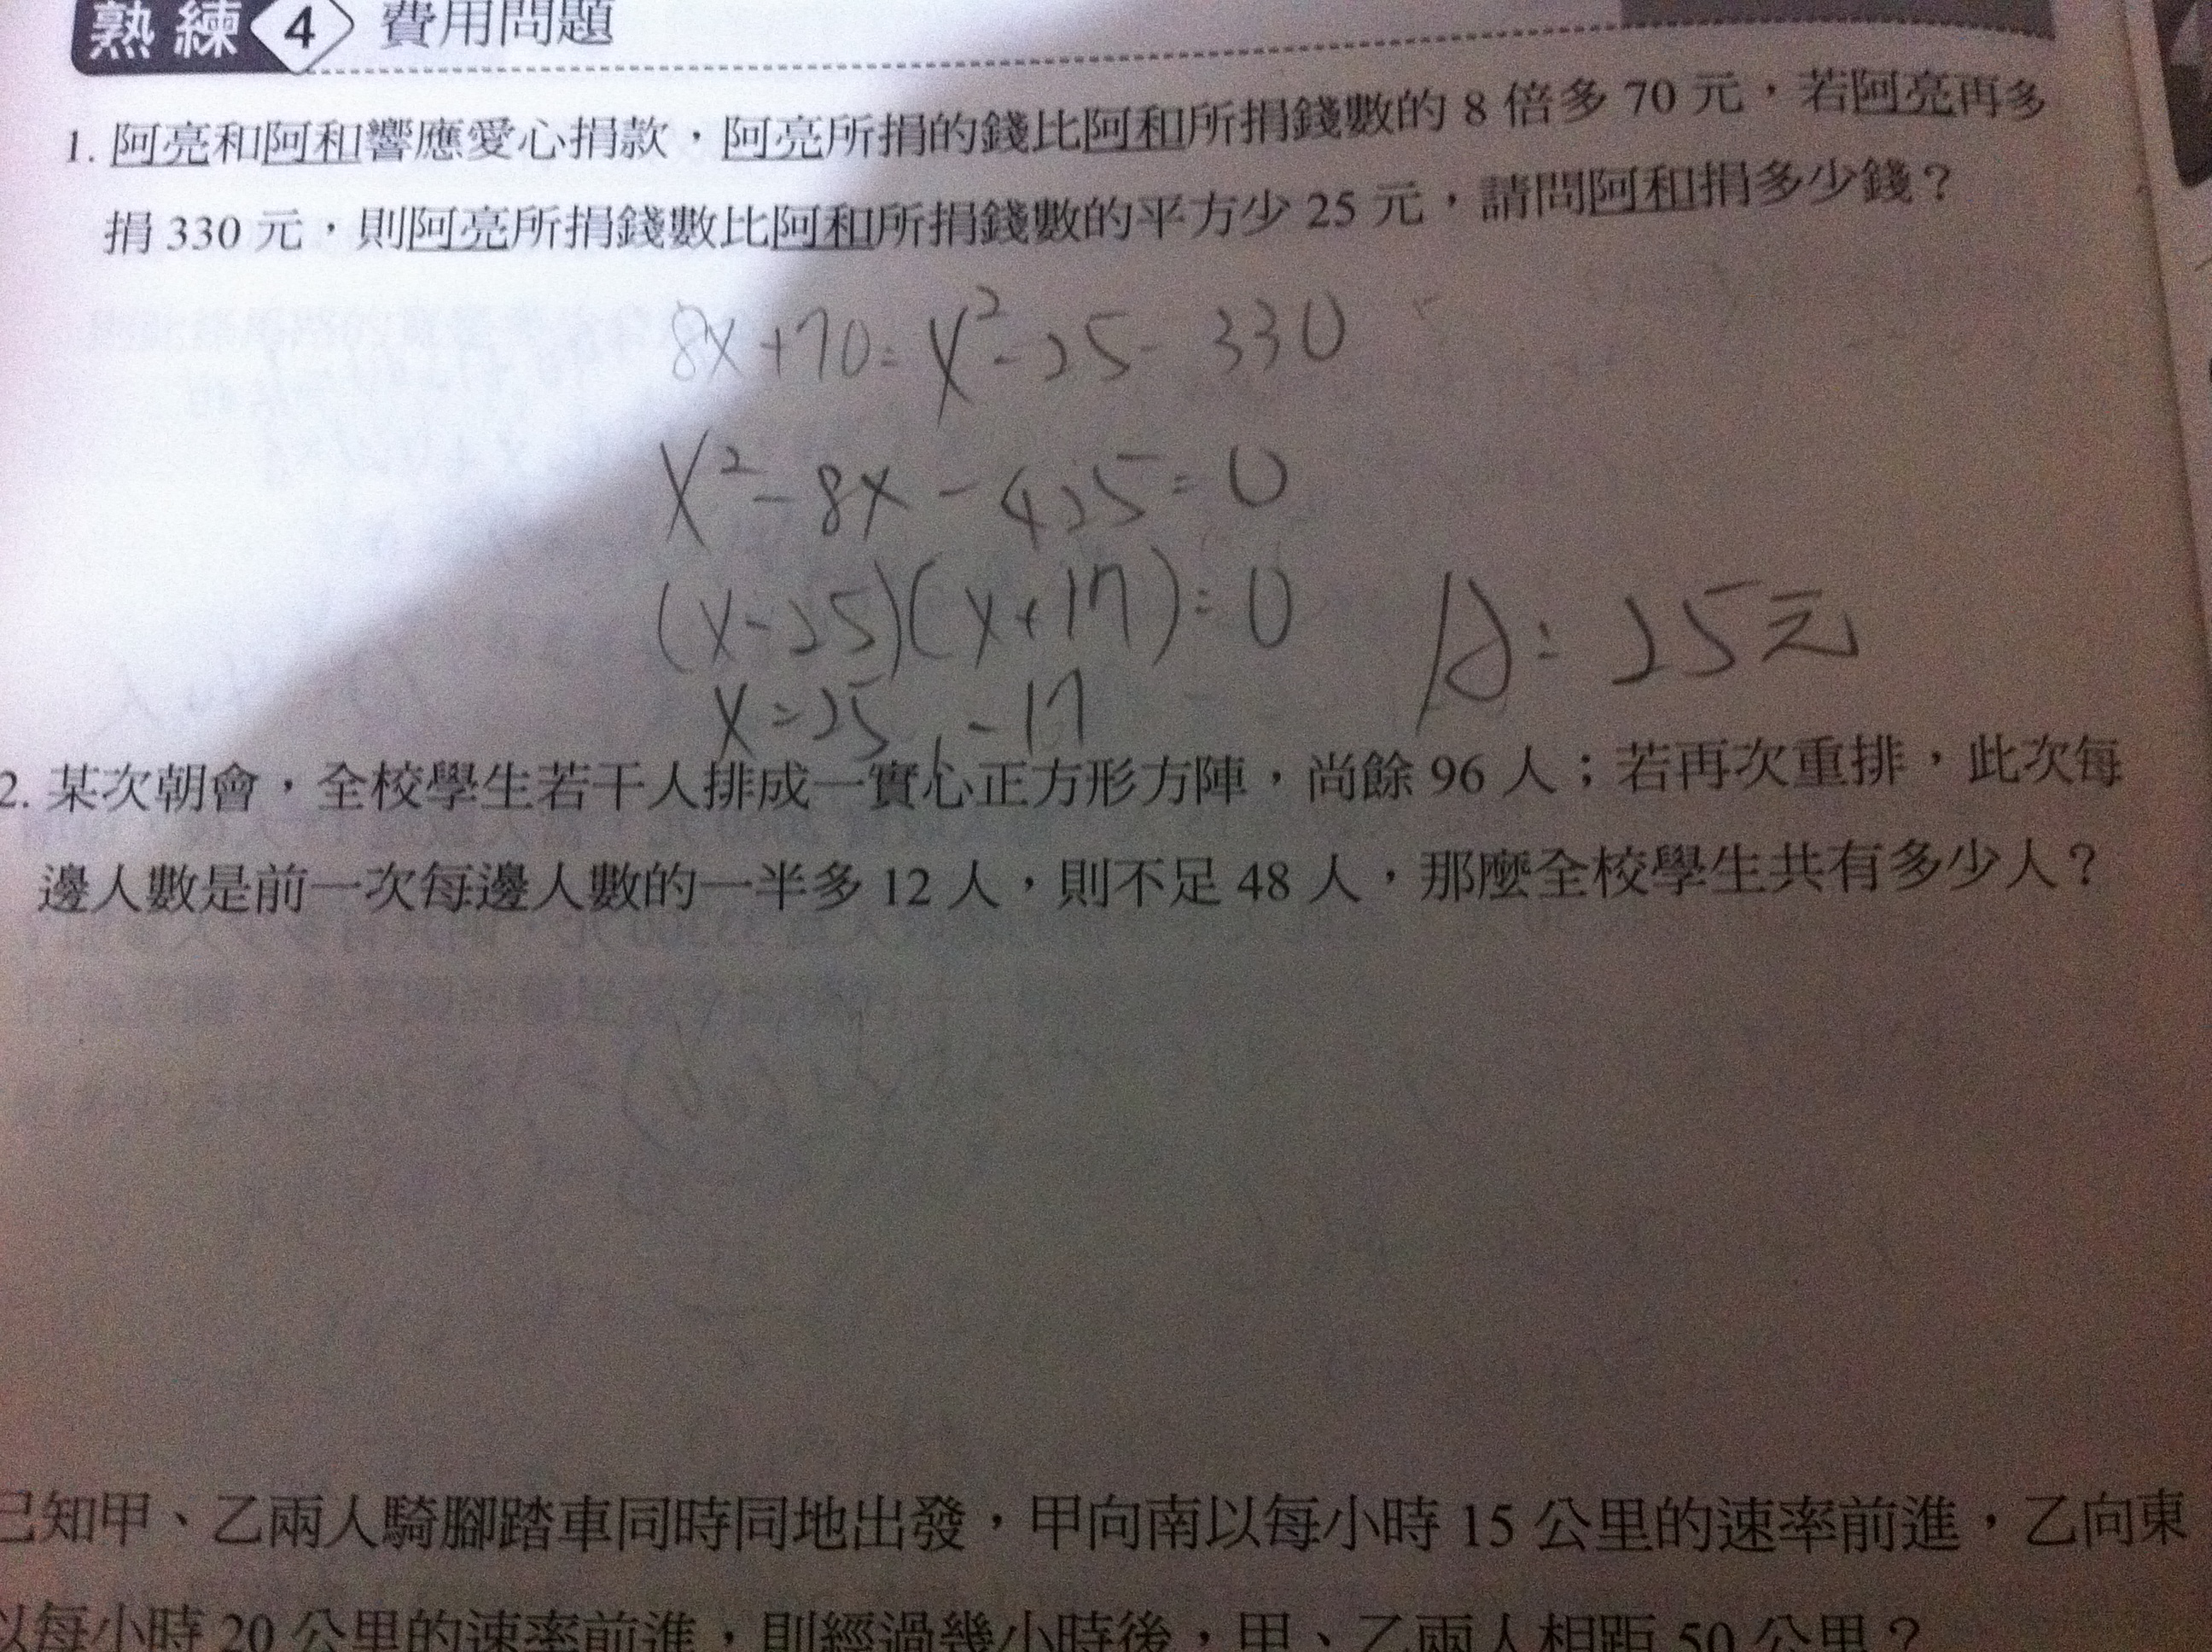 熟練 4 費用問題
1. 阿亮和阿和響應愛心捐款，阿亮所捐的錢比阿和所捐錢數的 8 倍多 70 元，若阿亮再多
捐 330 元，則阿亮所捐錢數比阿和所捐錢數的平方少 25 元，請問阿和捐多少錢？
8x+70=x²-25-330
x²-8x-425=0
(x-25)(x+17)=0
A：25元
x=25，-17
2. 某次朝會，全校學生若干人排成一實心正方形方陣，尚餘 96 人；若再次重排，此次每
邊人數是前一次每邊人數的一半多 12 人，則不足 48 人，那麼全校學生共有多少人？
已知甲、乙兩人騎腳踏車同時同地出發，甲向南以每小時 15 公里的速率前進，乙向東
以每小時 20 公里的速率前進，則經過幾小時後，甲、乙兩人相距 50 公里？